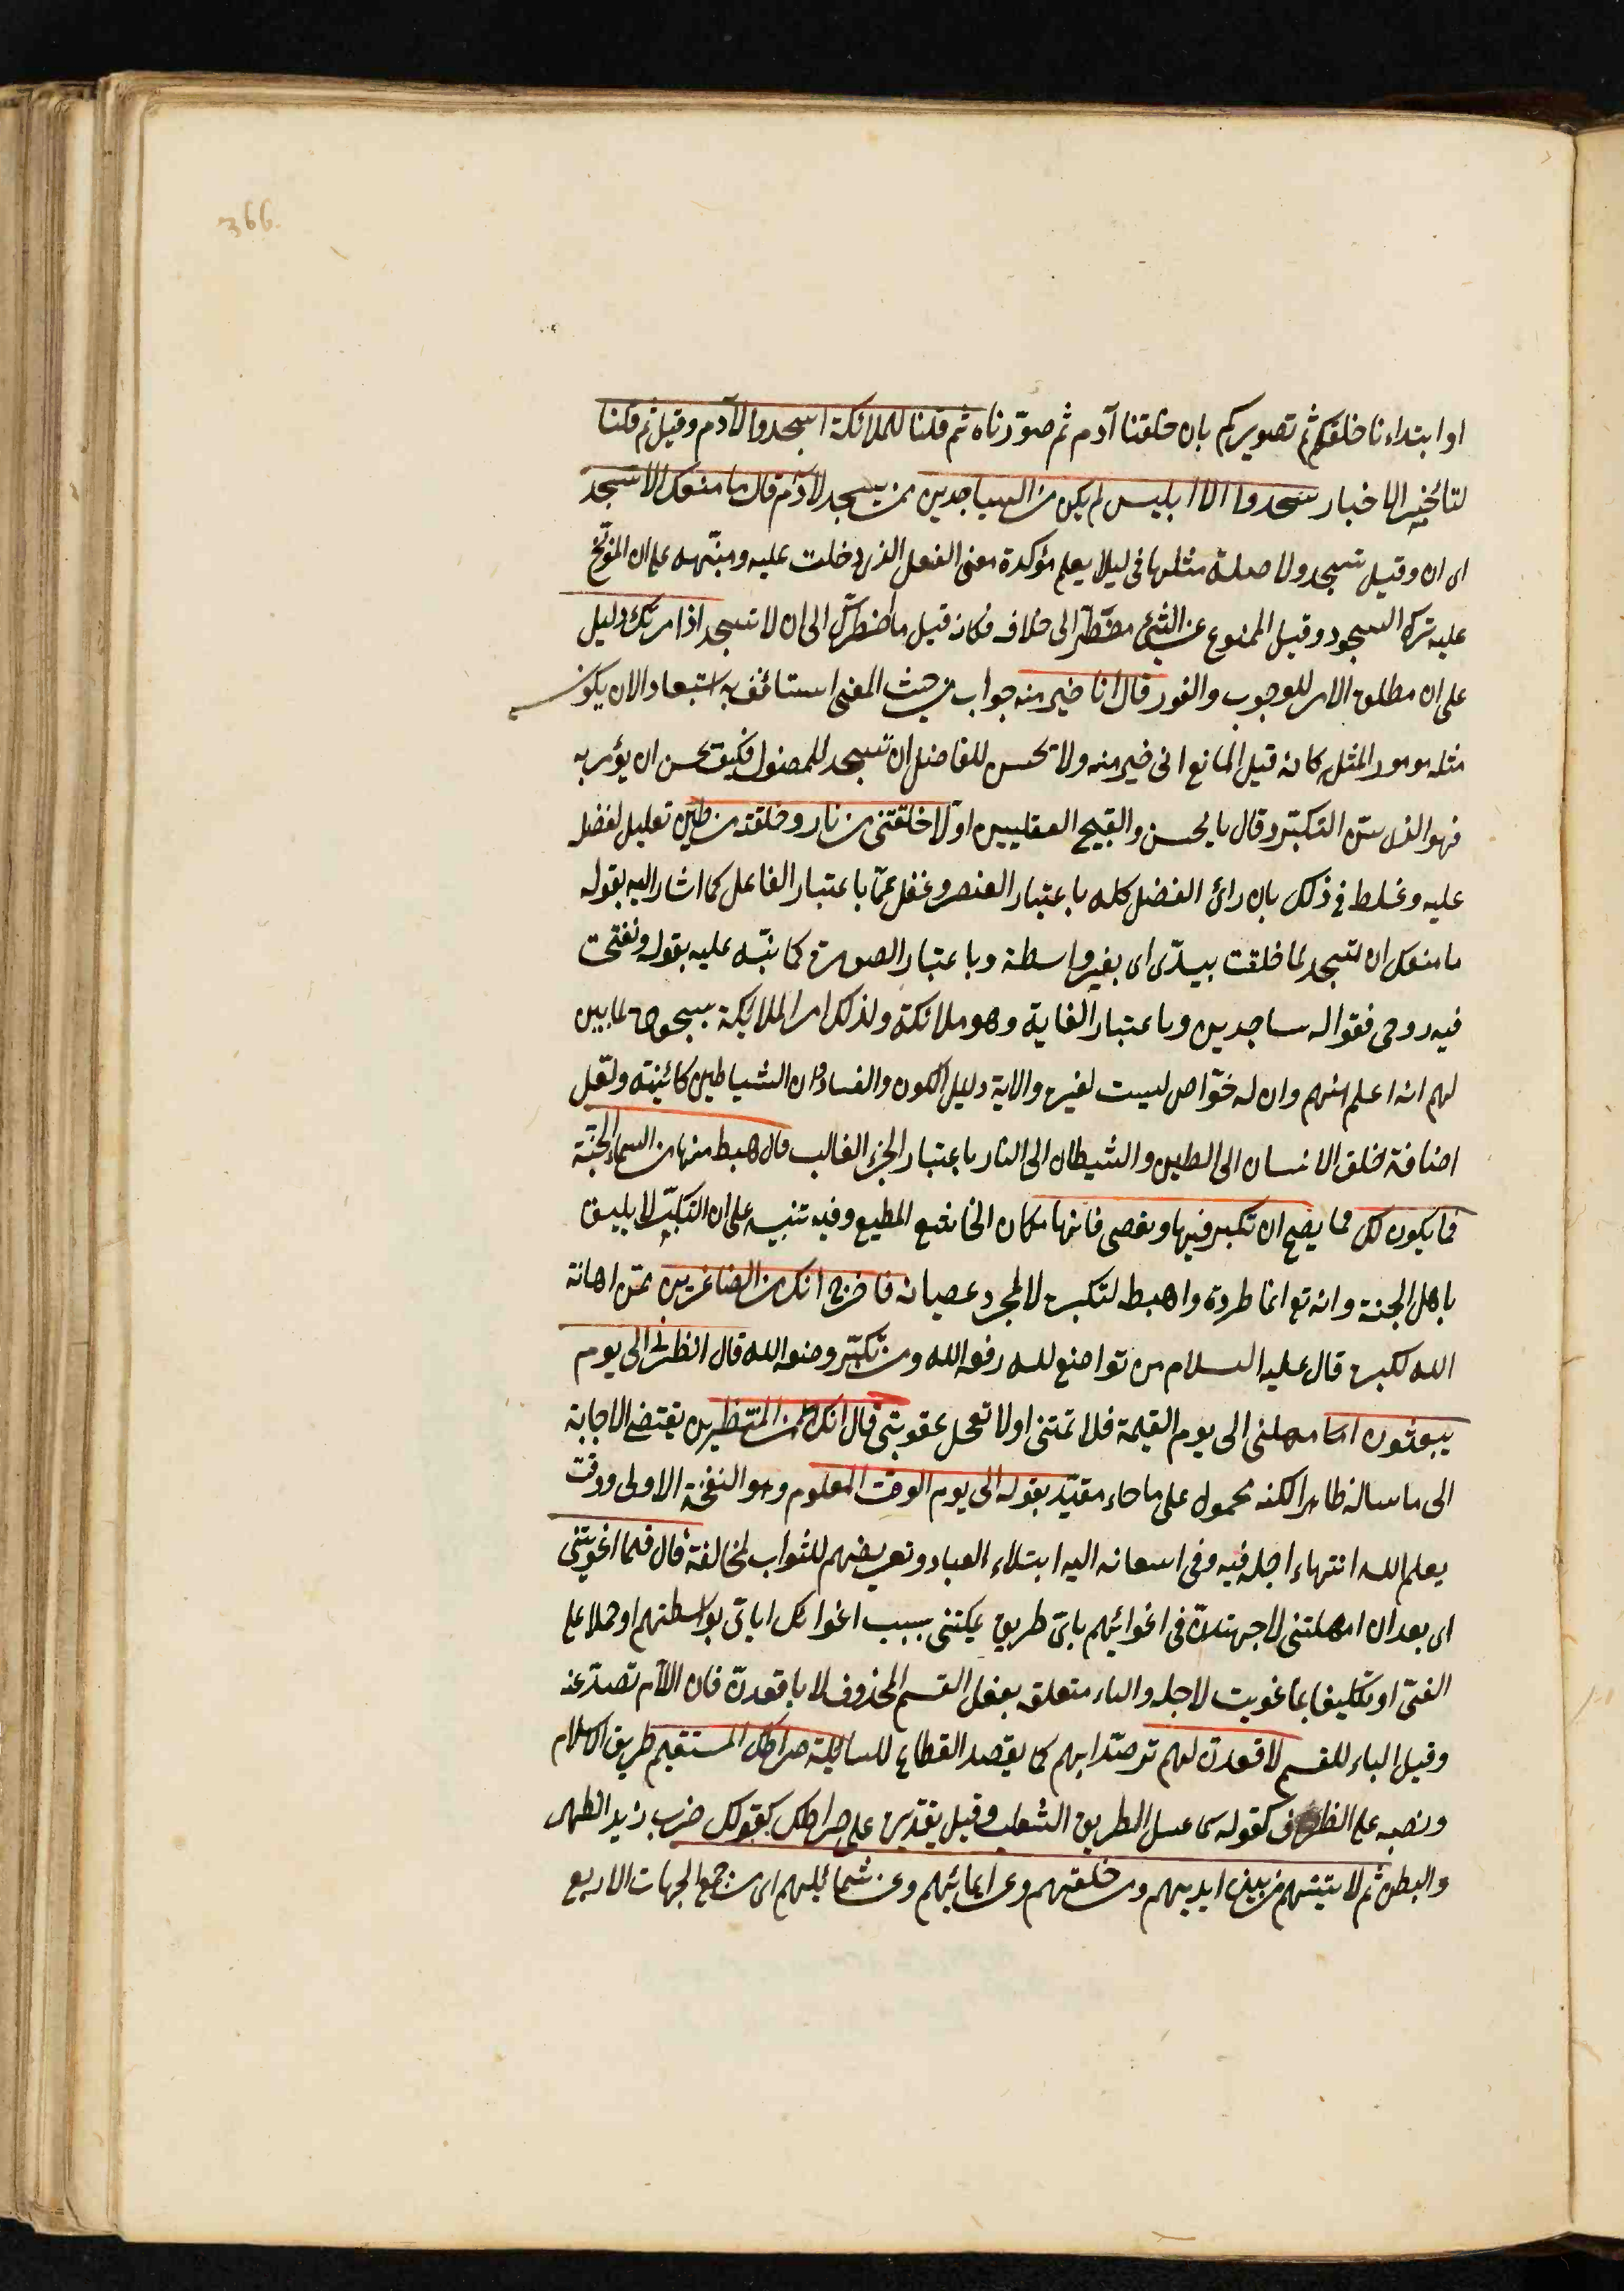 366
او ابتداءنا خلقكم ثم تصويركم بان خلقنا آدم ثم صوّرناه ثم قلنا للملائكة اسجدوا لآدم وقيل ثم قلنا
لتاخير الاخبار فسجدوا الا ابليس لم يكن من الساجدين ممن يسجد لآدم قال ما منعك الا تسجد
اى ان وقيل تسجد ولا صلة مثلها فى ليلا يعلم مؤكدة معنى الفعل الذى دخلت عليه ومنبّهه على ان الموبّخ
عليه ترك السجود وقيل الممنوع عن الشئ مضطرّ الى خلافه فكانه قيل ما اضطرّك الى ان لا تسجد اذا مرتك دليل
على ان مطلق الامر للوجوب والفور قال انا خير منه جواب من حيث المعنى استائف به استبعادا لان يكون
مثله مومورا لمثله كانه قيل المانع انى خير منه ولا يحسن للفاضل ان تسجد للمفضول فكيف يحسن ان يؤمر به
فهو الذى سنّ التكبّر وقال بالحسن والقبيح العقليين اوّلا خلقتنى من نار وخلقته من طين تعليل لفضله
عليه وغلط فى ذلك بان راى الفضل كله باعتبار العنصر وغفل عمّا باعتبار الفاعل كما اشار اليه بقوله
ما منعك ان تسجد لما خلقت بيدّى اى بغير واسطة وباعتبار الصورة كما نبّه عليه بقوله ونفخت
فيه روحى فقعوا له ساجدين وباعتبار الغاية وهو ملائكة ولذلك امر الملائكة بسجوده لما بين
لهم انه اعلم منهم وان له خوّاص ليست لغيره والاية دليل الكون والفساد وان الشياطين كائنة ولعل
اضافة خلق الانسان الى الطين والشيطان الى النار باعتبار الجزء الغالب قال هبط منها من السماء الجنّة
فما يكون لك فما يصح ان تكبر فيها وتعصى فانها مكان الخاشع المطيع وفيه تنبيه على ان التكبّر لا يليق
باهل الجنة وانه تع انما طرده واهبطه لتكبره لا لمجرد عصيانه فاخرج انك من الصاغرين ممن اهانه
الله لكبره قال عليه السلام من تواضع لله رفعه الله ومن تكبّر وضعه الله قال انظرنى الى يوم
يبعثون امهلنى الى يوم القيمة فلا تمتنى اولا تعجل عقوبتى قال انك من المنتظرين يقتضى الاجابة
الى ما ساله ظاهرا لكنه محمول على ما جاء مقيّد بقوله الى يوم الوقت المعلوم وهو النفخة الاولى ووقت
يعلم الله انتهاء اجله فيه وفى اسعانه اليه ابتلاء العباد وتعريضهم للثواب لمخالفة قال فبما اغويتنى
اى بعد ان امهلتنى لاجهتدنّ فى اغوائيهم باىّ طريق يمكننى بسبب اغوائك اياىّ بواسطتهم او حملا على
الغىّ او تكليفا بما غويت لاجله والباء متعلق بفعل القسم المحذوف لا باقعدنّ فان اللآم تصدّ عنه
وقيل الباء للقسم لاقعدنّ لهم ترصّدا بهم كما يقصد القطاع للسابلة صراطك المستقيم طريق الاسلام
ونصبه على الظرف كقوله كما عسل الطريق الثعلب وقيل تقديره على صراطك كقولك ضرب زيد الظهر
والبطن ثم لاتيتنهم من بين ايديهم ومن خلفهم وعن ايمانهم وعن شمائلهم اى من جميع الجهات الاربع